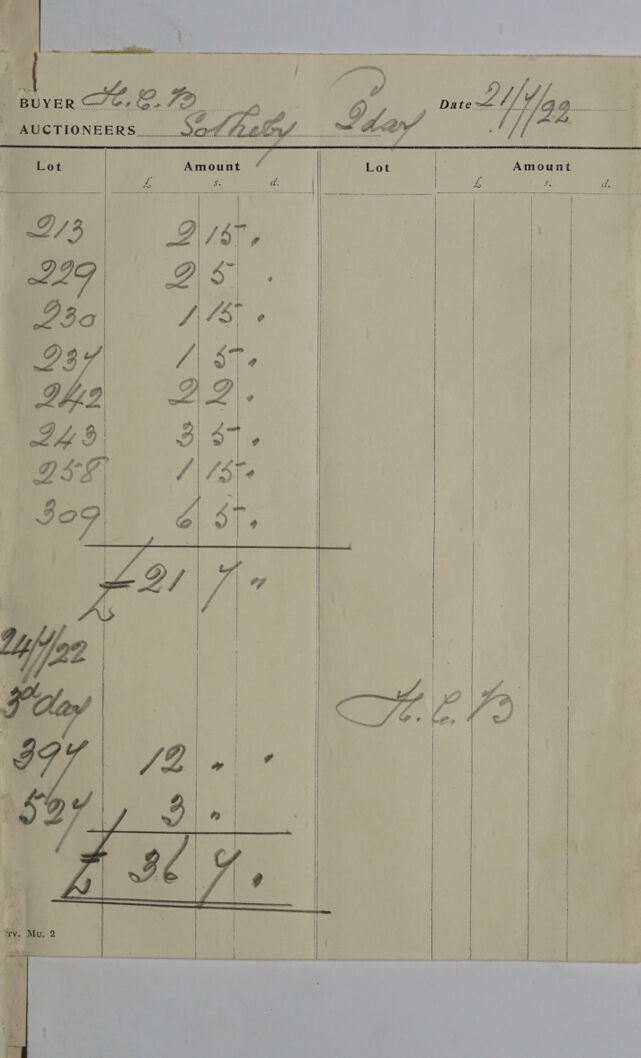 BUYER H. C. B Date 21/7/22
AUCTIONEERS Sotheby 2 day
Lot Amount Lot Amount
£ s. d. £ s. d.
213 2 15 .
229 2 5 .
230 1 15 .
237 1 5 .
242 2 2 .
243 3 5 .
258 1 15 .
309 6 5 .
£ 21 7 "
24/7/22
3d day
H. C. B
397 12 " .
527 3 "
£ 36 7 .
Mu. 2